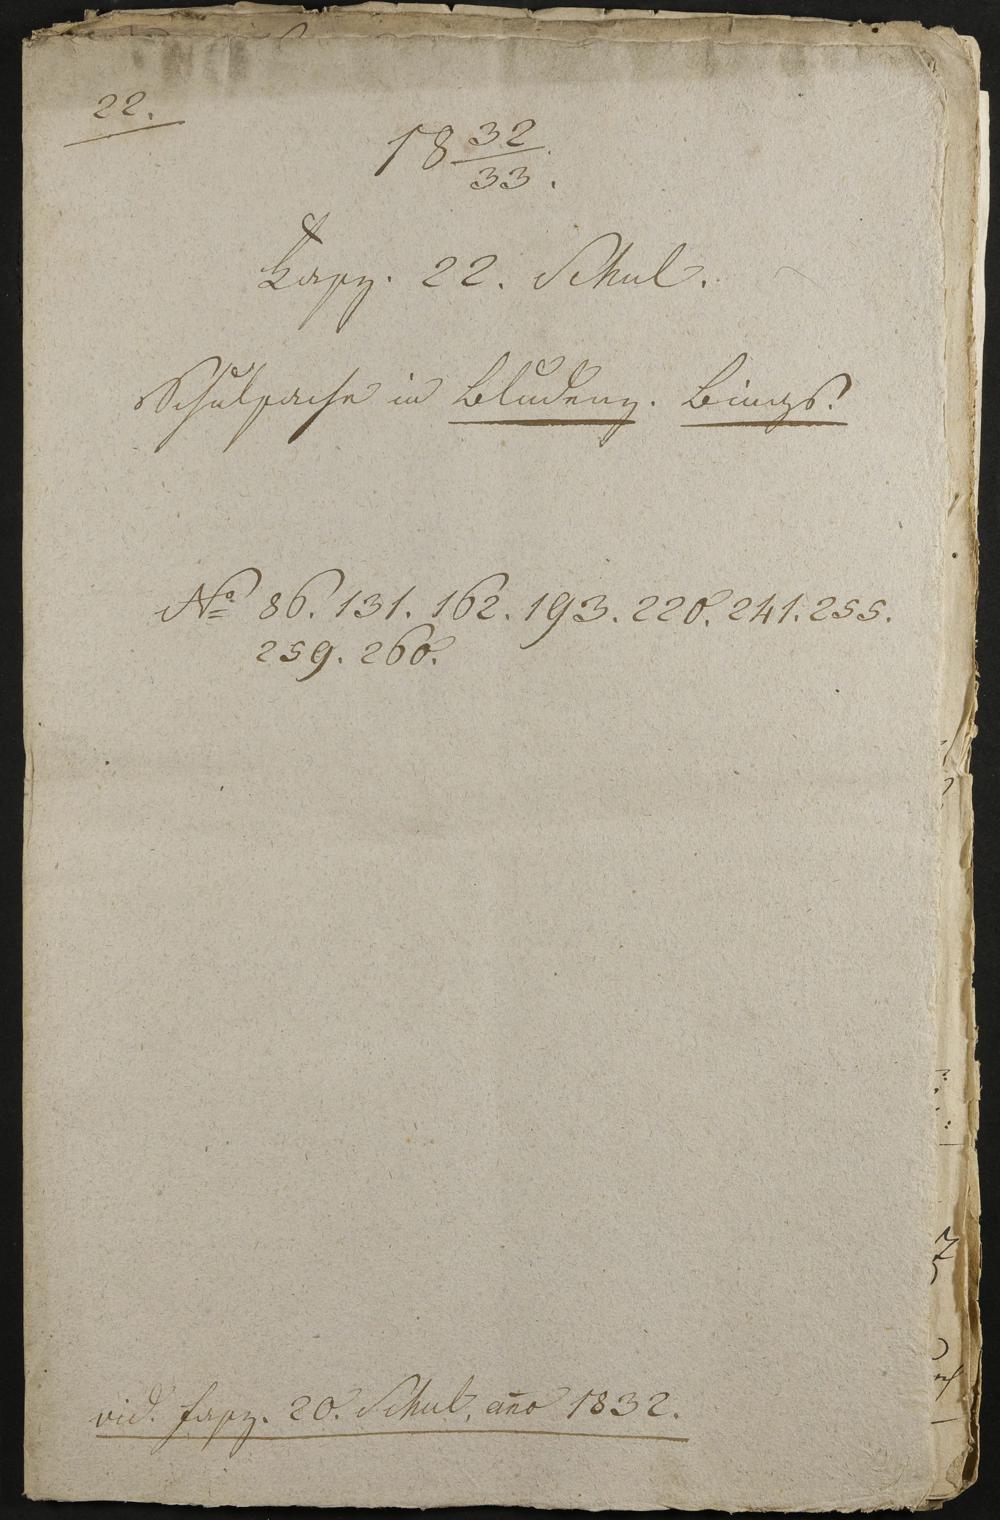 22.
18 32/33.
Fasz. 22. Schul.
Schulsache in Bludenz. Bings.
No 86. 131. 162. 193. 220. 241. 255.
259. 260.
vid. fasz. 20. Schul, año 1832.